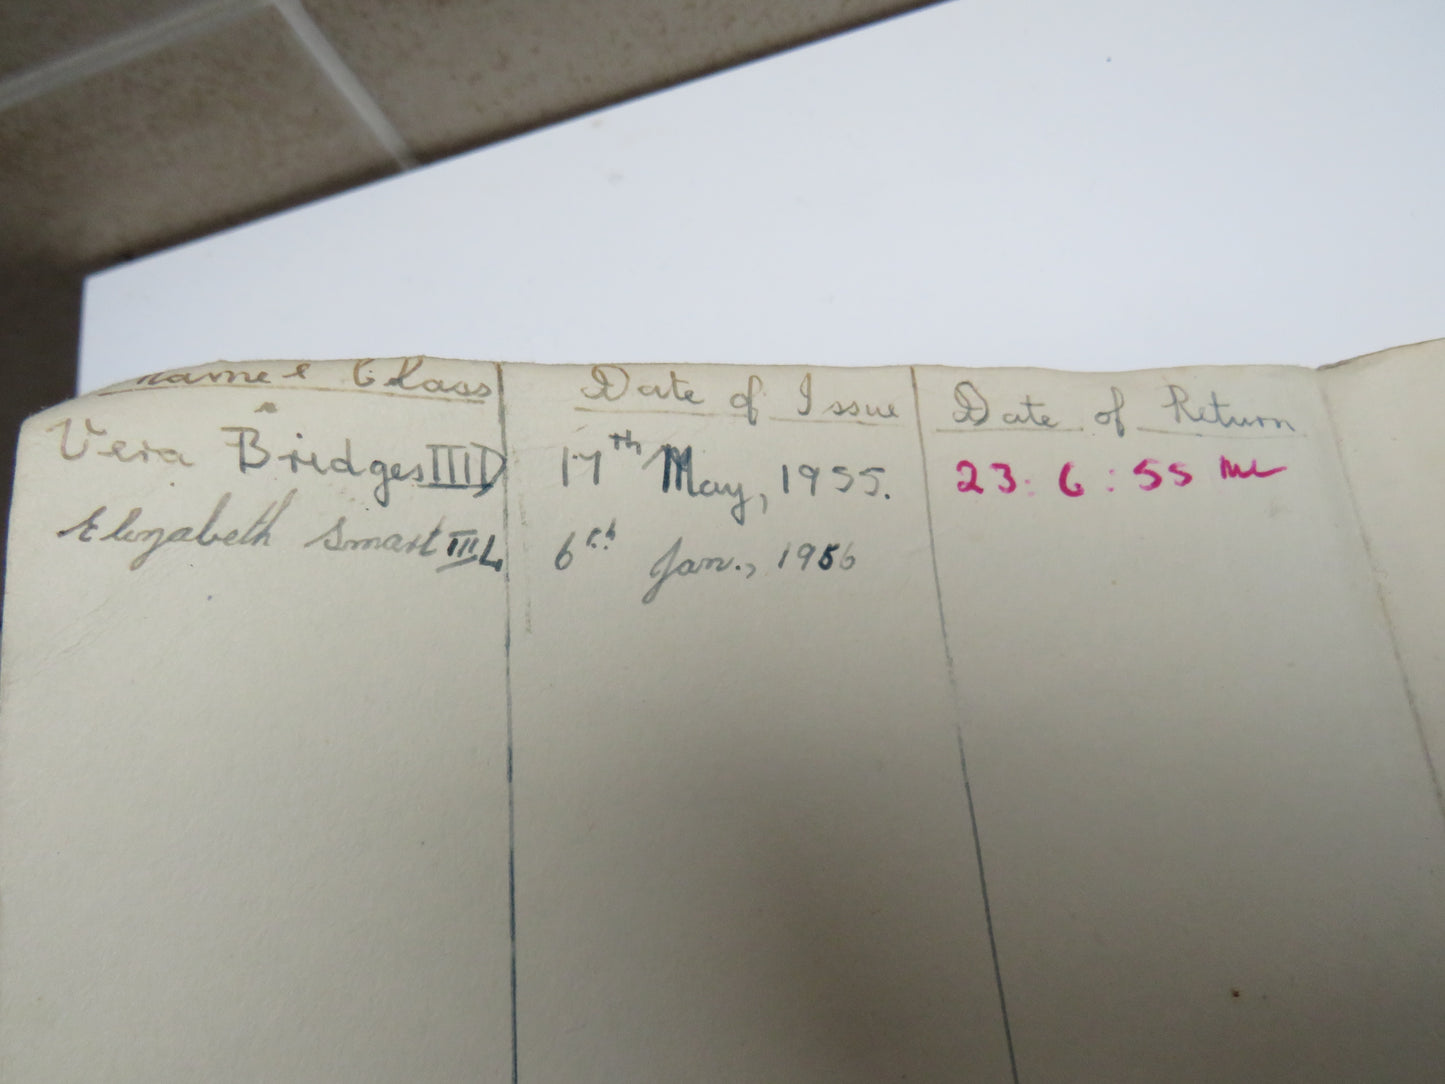 Name & Class Date of Issue Date of Return
Vera Bridges III D 17th May, 1955. 23:6:55
Elizabeth Smart III L 6th Jan., 1956